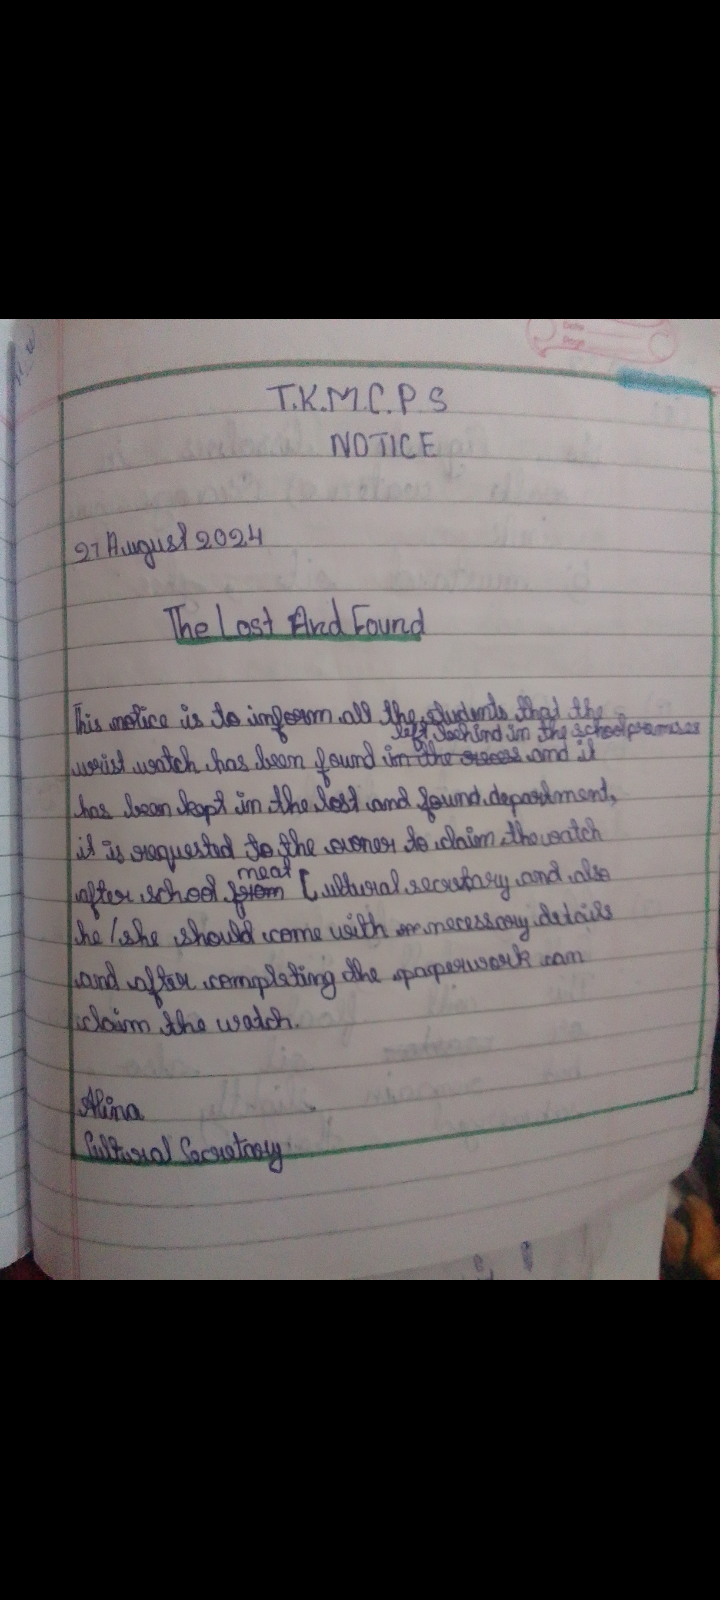 T.K.M.C.P.S
NOTICE
27 August 2024
The Lost And Found
This notice is to inform all the students that the
left behind in the school premises
wrist watch has been found in the recess and it
has been kept in the lost and found department,
it is requested to the owner to claim the watch
meat
after school from Cultural secretary and also
he/she should come with necessary details
and after completing the paperwork can
claim the watch.
Alina
Cultural Secretary